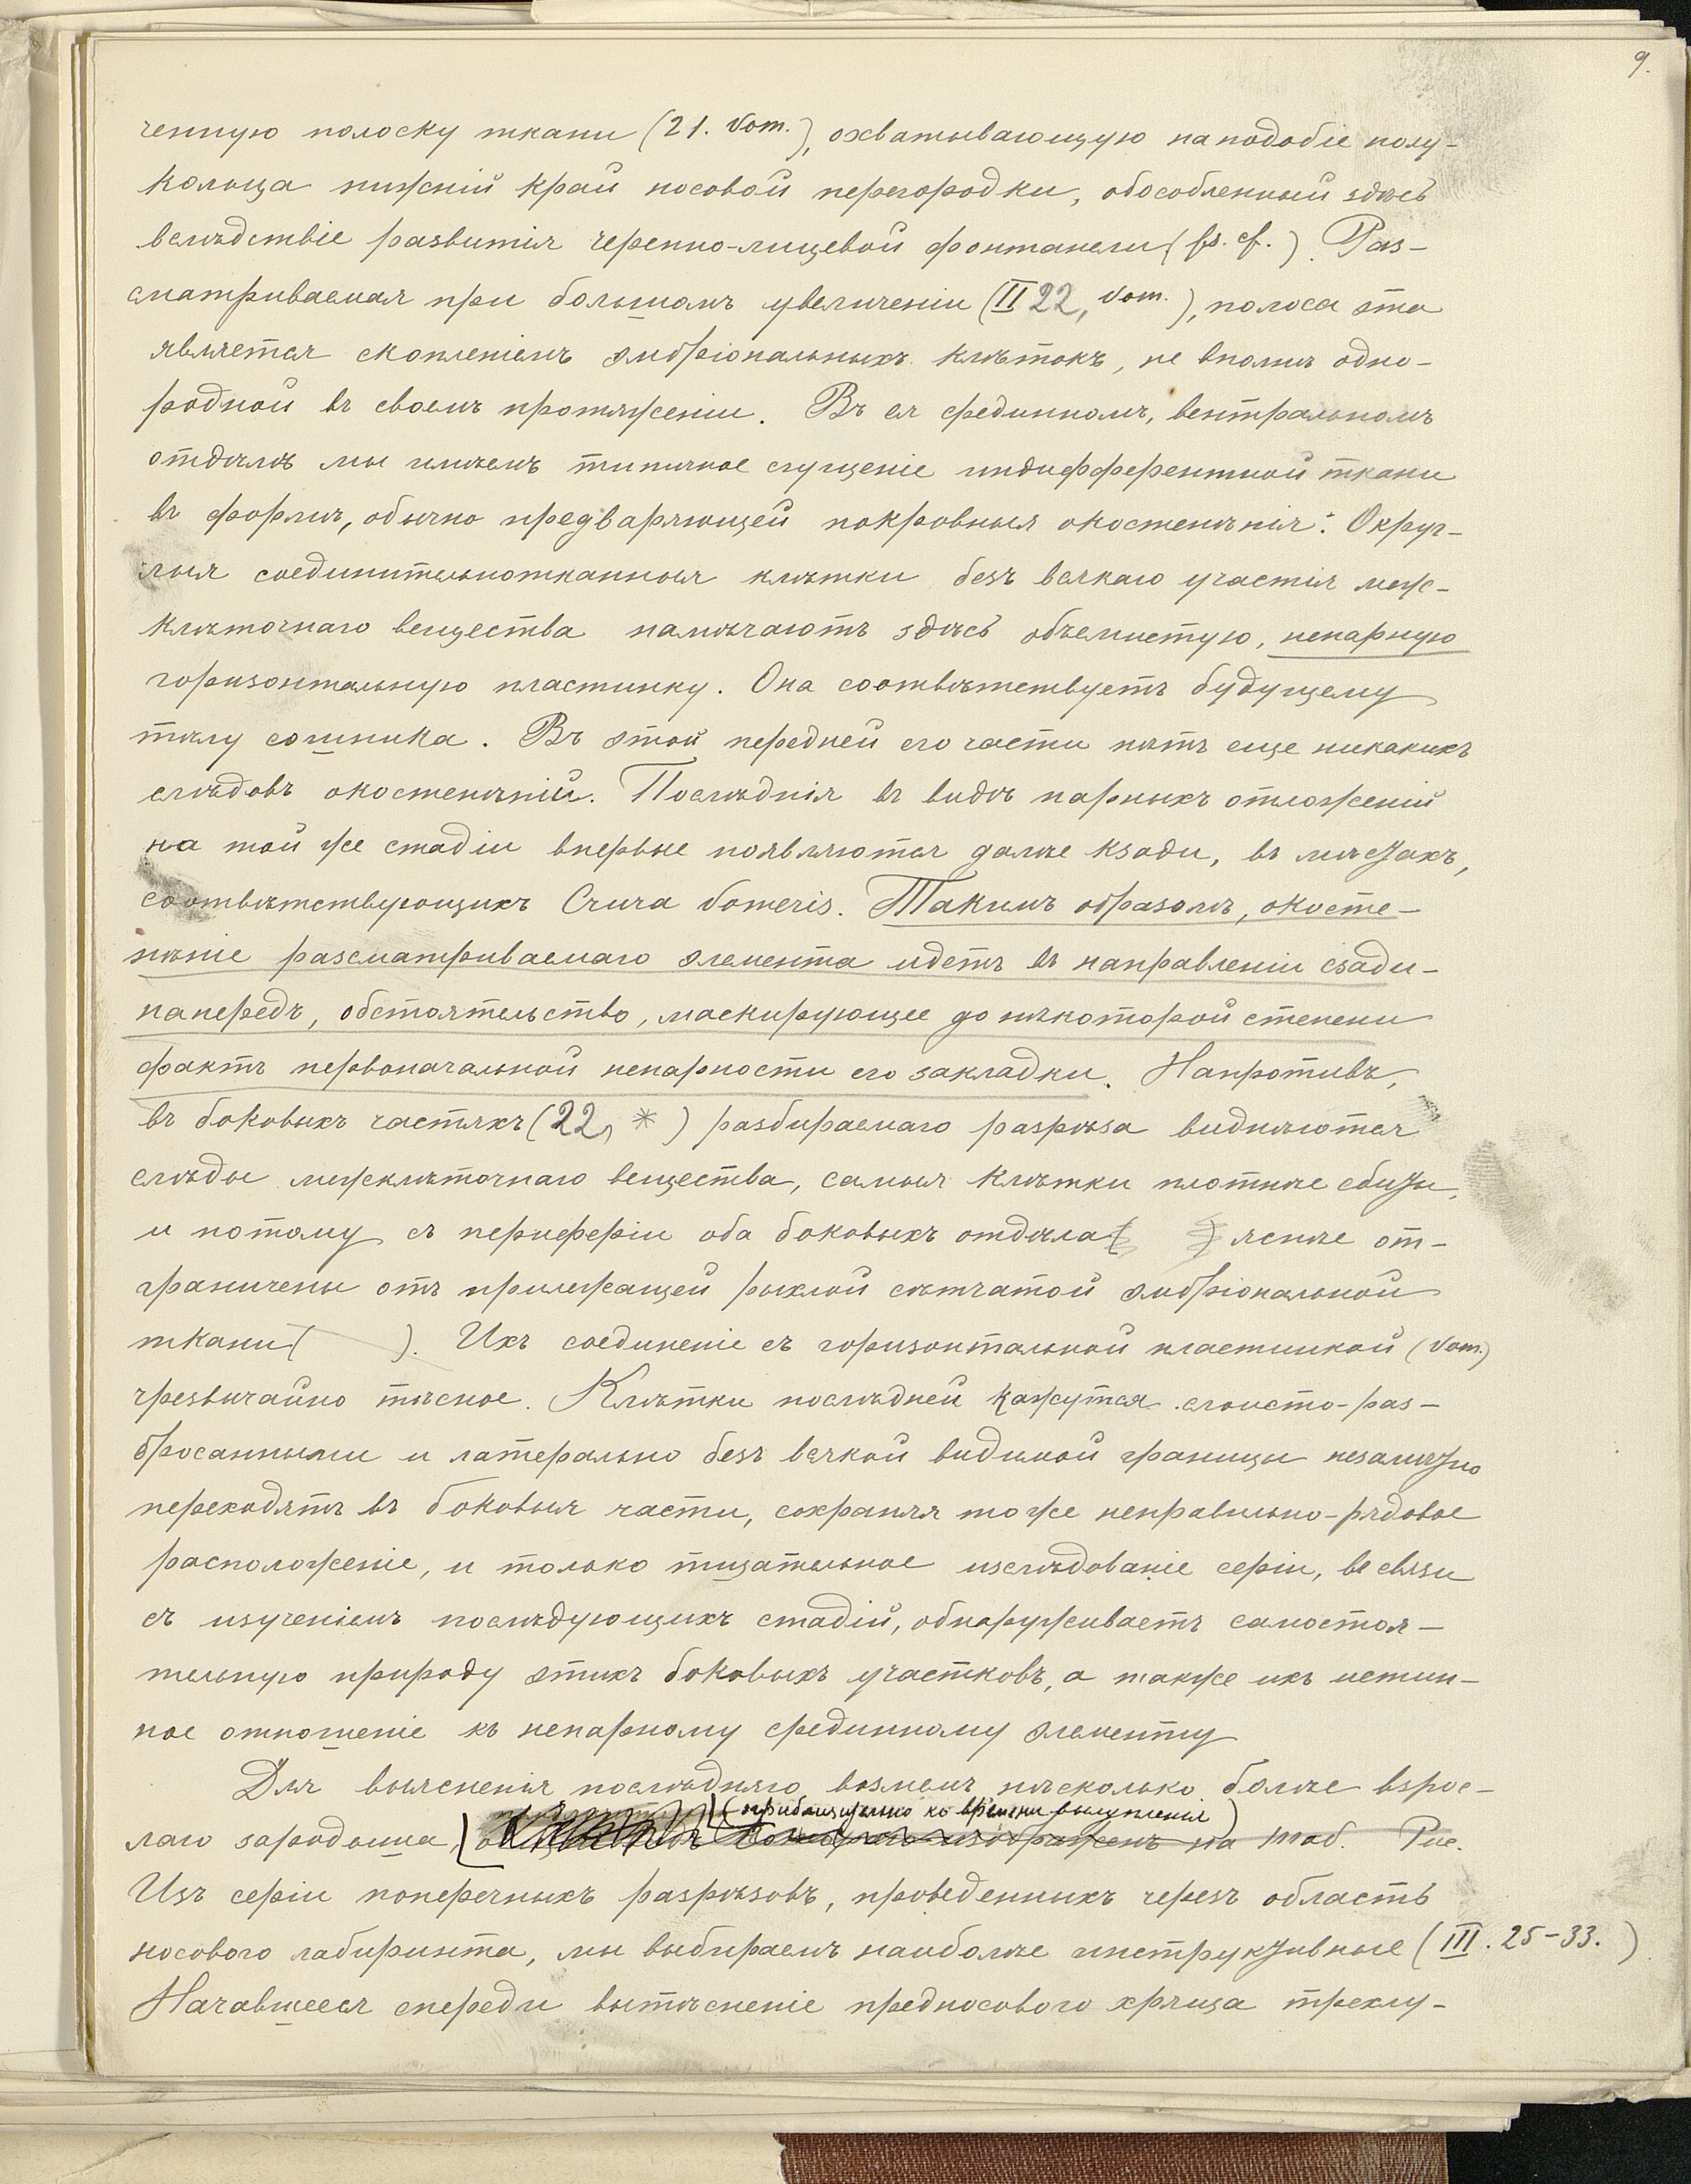 9.
ченную полоску ткани (21. Vom.), охватывающую наподобіе полу-
кольца нижній край носовой перегородки, обособленный здѣсь
вслѣдствіе развитія черепно-лицевой фонтанели (fs. cf.). Раз-
сматриваемая при большомъ увеличеніи (II 22, Vom.), полоса эта
является скопленіемъ эмбріональныхъ клѣтокъ, не вполнѣ одно-
родной въ своемъ протяженіи. Въ ея срединномъ, вентральномъ
отдѣлѣ мы имѣемъ типичное сгущеніе индифферентной ткани
въ формѣ, обычно предваряющей покровныя окостенѣнія: Округ-
лыя соединительнотканныя клѣтки безъ всякаго участія меж-
клѣточнаго вещества намѣчаютъ здѣсь объемистую, непарную
горизонтальную пластинку. Она соотвѣтствуетъ будущему
тѣлу сошника. Въ этой передней его части нѣтъ еще никакихъ
слѣдовъ окостенѣній. Послѣднія въ видѣ парныхъ отложеній
на той же стадіи впервые появляются далѣе кзади, въ мѣстахъ,
соотвѣтствующихъ Crura vomeris. Такимъ образомъ, окосте-
нѣніе разсматриваемаго элемента идетъ въ направленіи сзади-
напередъ, обстоятельство, маскирующее до нѣкоторой степени
фактъ первоначальной непарности его закладки. Напротивъ,
въ боковыхъ частяхъ (22, *) разбираемаго разрѣза виднѣются
слѣды межклѣточнаго вещества, самыя клѣтки плотнѣе сбиты,
и потому съ периферіи оба боковыхъ отдѣла ( ) яснѣе от-
граничены отъ прилежащей рыхлой сѣтчатой эмбріональной
ткани ( ). Ихъ соединеніе съ горизонтальной пластинкой (Vom.)
чрезвычайно тѣсное. Клѣтки послѣдней кажутся слоисто-раз-
бросанными и латерально безъ всякой видимой границы незамѣтно
переходятъ въ боковыя части, сохраняя тоже неправильно-рядовое
расположеніе, и только тщательное изслѣдованіе серіи, въ связи
съ изученіемъ послѣдующихъ стадій, обнаруживаетъ самостоя-
тельную природу этихъ боковыхъ участковъ, а также ихъ истин-
ное отношеніе къ непарному срединному элементу
Для выясненія послѣдняго возмемъ нѣсколько болѣе взрос-
(приблизительно ко времени вылупленія)
лаго зародыша, изображенъ на таб. Рис.
Изъ серіи поперечныхъ разрѣзовъ, проведенныхъ черезъ область
носового лабиринта, мы выбираемъ наиболѣе инструктивные (III. 25-33.)
Начавшееся спереди вытѣсненіе предносового хряща трехлу-